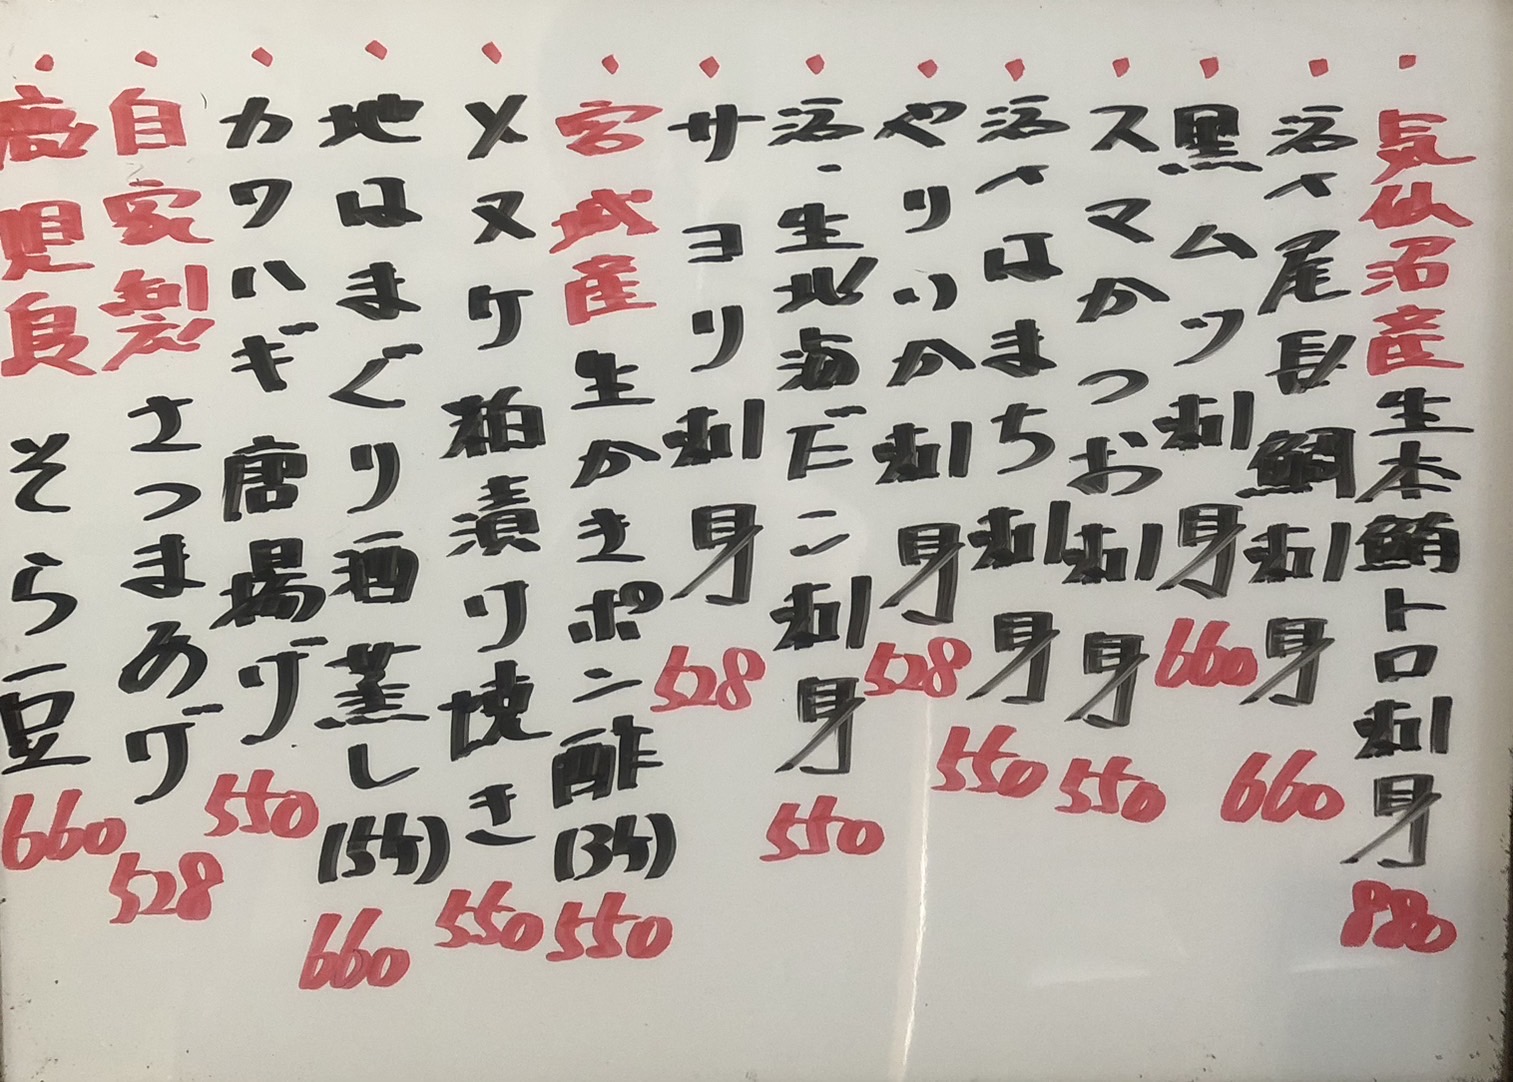 ・気仙沼産生本鮪トロ刺身 880
・活〆尾長鯛刺身 660
・黒ムツ刺身 660
・スマかつお刺身 550
・活〆はまち刺身 550
・やりいか刺身 528
・活・生北海だこ刺身 550
・サヨリ刺身 528
・宮城産生かきポン酢(3ヶ) 550
・メヌケ粕漬け焼き 550
・地はまぐり酒蒸し(5ヶ) 660
・カワハギ唐揚げ 550
・自家製さつまあげ 528
・鹿児島そら豆 660